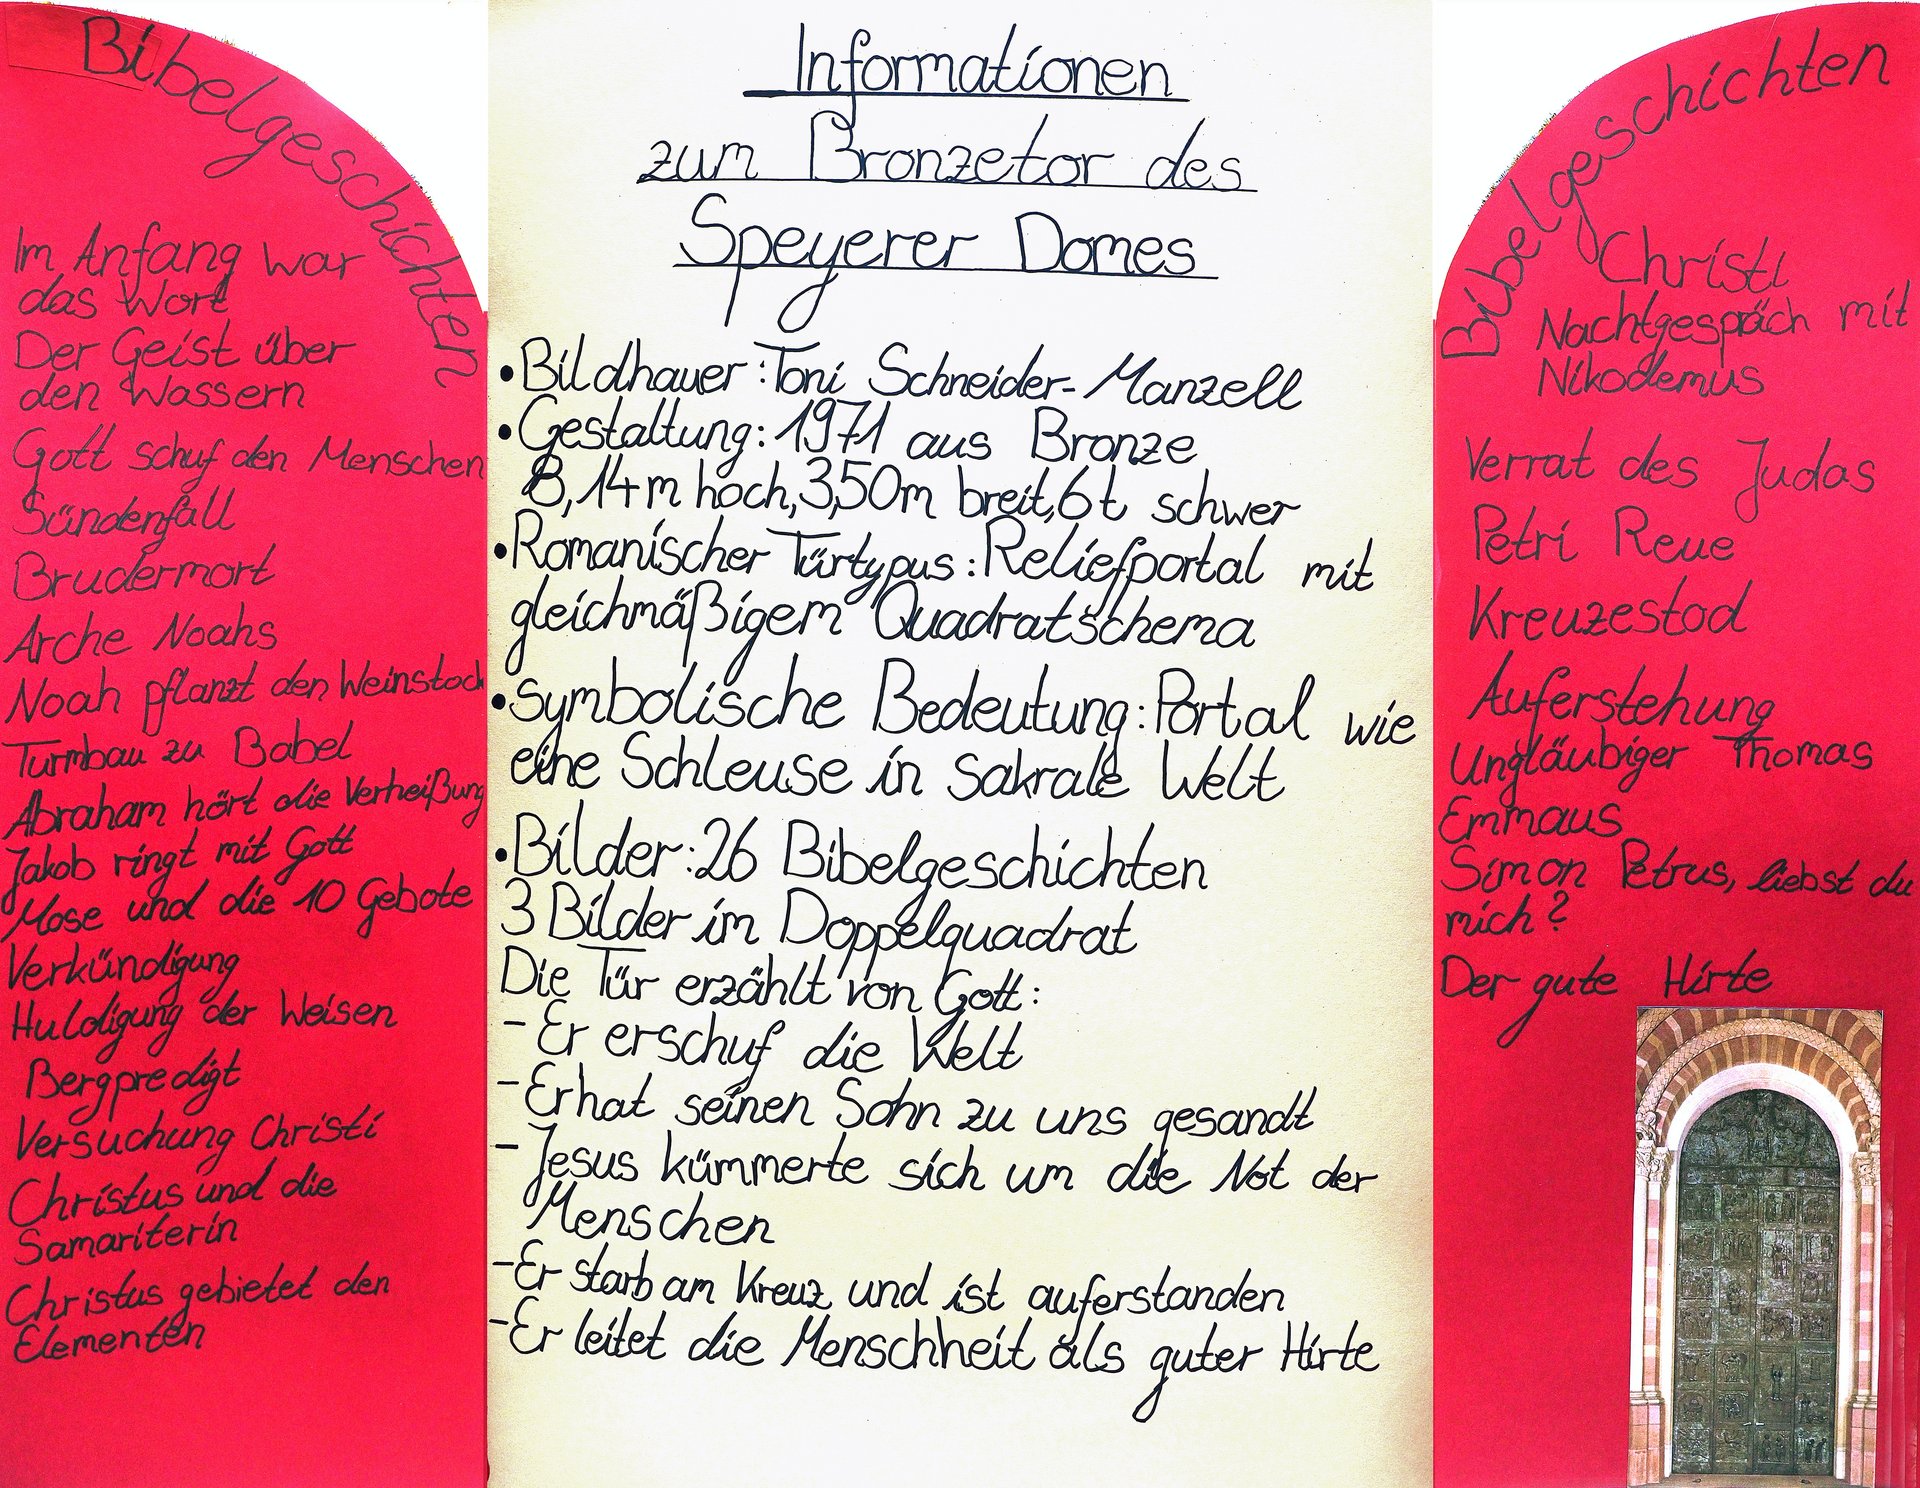 Bibelgeschichten
Im Anfang war
das Wort
Der Geist über
den Wassern
Gott schuf den Menschen
Sündenfall
Brudermort
Arche Noahs
Noah pflanzt den Weinstock
Turmbau zu Babel
Abraham hört die Verheißung
Jakob ringt mit Gott
Mose und die 10 Gebote
Verkündigung
Huldigung der Weisen
Bergpredigt
Versuchung Christi
Christus und die
Samariterin
Christus gebietet den
Elementen
Informationen
zum Bronzetor des
Speyerer Domes
•Bildhauer: Toni Schneider-Manzell
•Gestaltung: 1971 aus Bronze
8,14m hoch, 3,50m breit, 6t schwer
•Romanischer Türtypus: Reliefportal mit
gleichmäßigem Quadratschema
•symbolische Bedeutung: Portal wie
eine Schleuse in sakrale Welt
•Bilder: 26 Bibelgeschichten
3 Bilder im Doppelquadrat
Die Tür erzählt von Gott:
- Er erschuf die Welt
- Er hat seinen Sohn zu uns gesandt
- Jesus kümmerte sich um die Not der
Menschen
- Er starb am Kreuz und ist auferstanden
- Er leitet die Menschheit als guter Hirte
Bibelgeschichten
Christi
Nachtgespräch mit
Nikodemus
Verrat des Judas
Petri Reue
Kreuzestod
Auferstehung
Ungläubiger Thomas
Emmaus
Simon Petrus, liebst du
mich?
Der gute Hirte